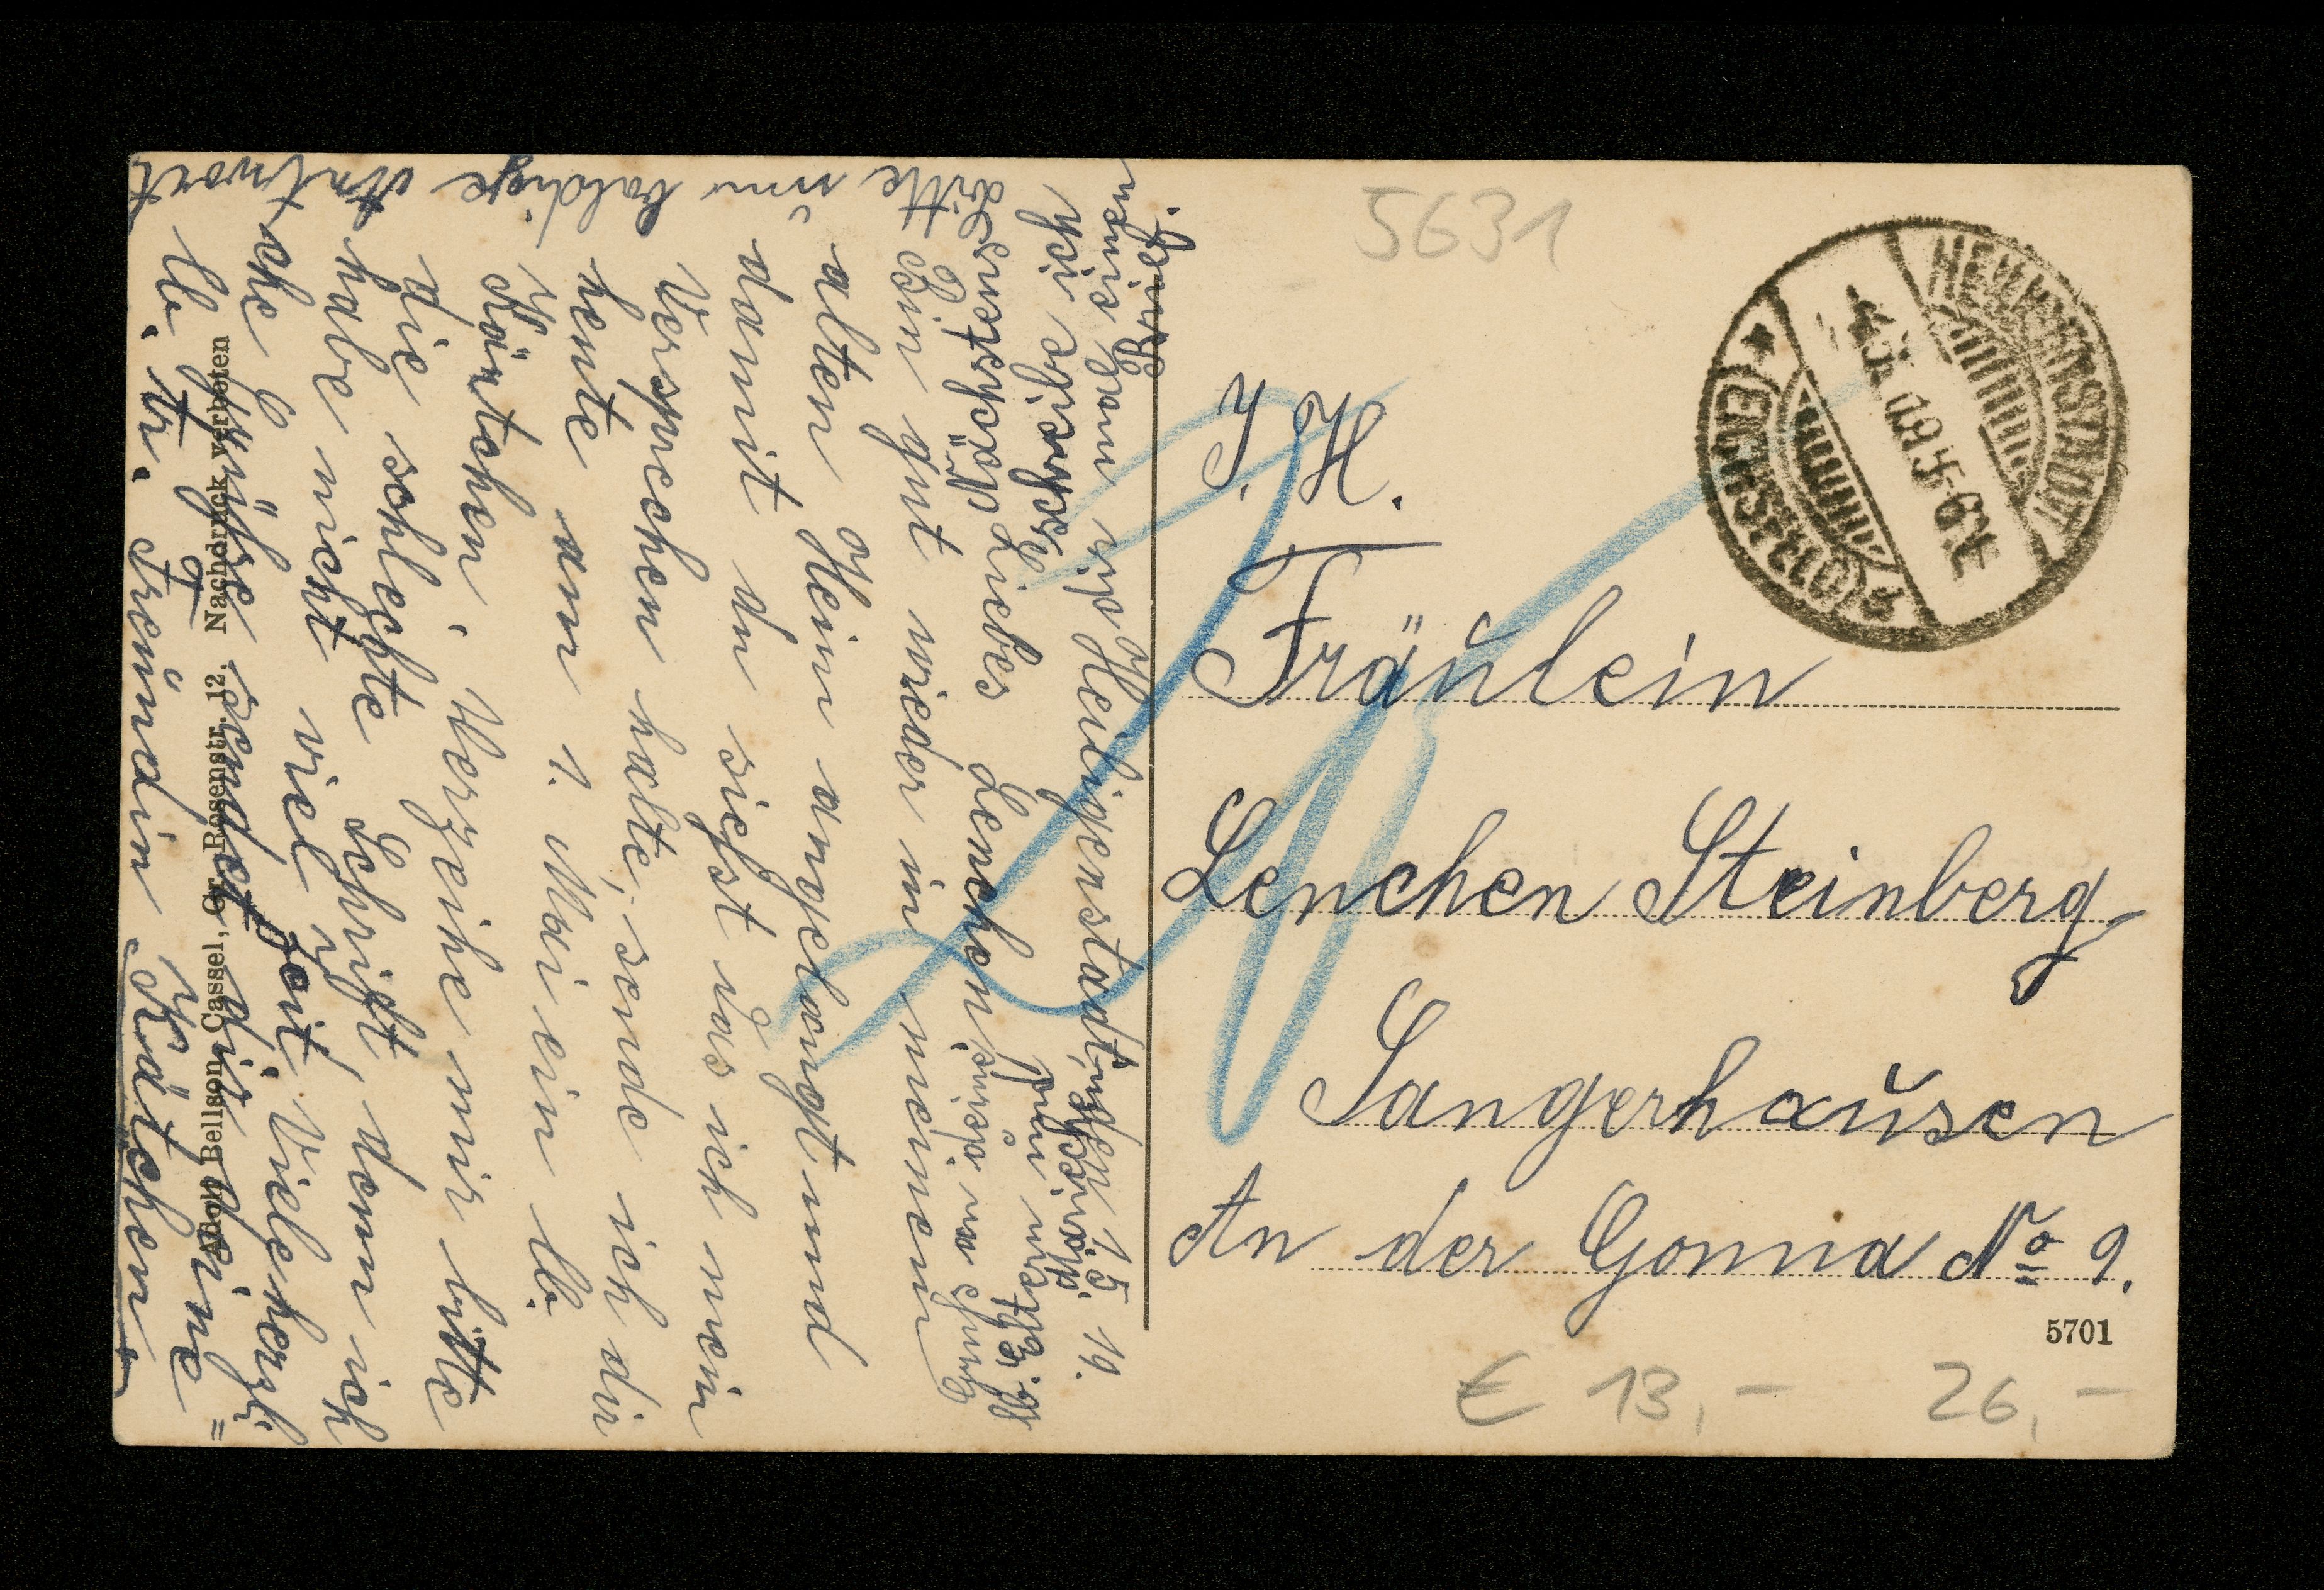 5631
HEILIGENSTADT
(EICHSFELD)
7.5.19. 4-5 N.
J. H.
Fräulein
Lenchen Steinberg
Sangerhausen
An der Gonna No 9.
5701
€ 13,- 26,-
Heiligenstadt, den 1.5. 19.
Liebes Lenchen!
Bin gut wieder in meinem
alten Heim angelangt und
damit du siehst das ich mein
Versprechen halte, sende ich dir
heute am 1. Mai ein lb.
Kärtchen. Verzeihe mir bitte
die schlechte Schrift, denn ich
habe nicht viel Zeit. Vielherzli-
che Grüße sendet dir deine =
lb. tr. Freundin Kätchen.
Bitte um baldige Antwort
Nächstens
schreibe ich
einen Brief.
Gruß an deine
Adolf Bellson, Cassel, Gr. Rosenstr. 12. Nachdruck verboten